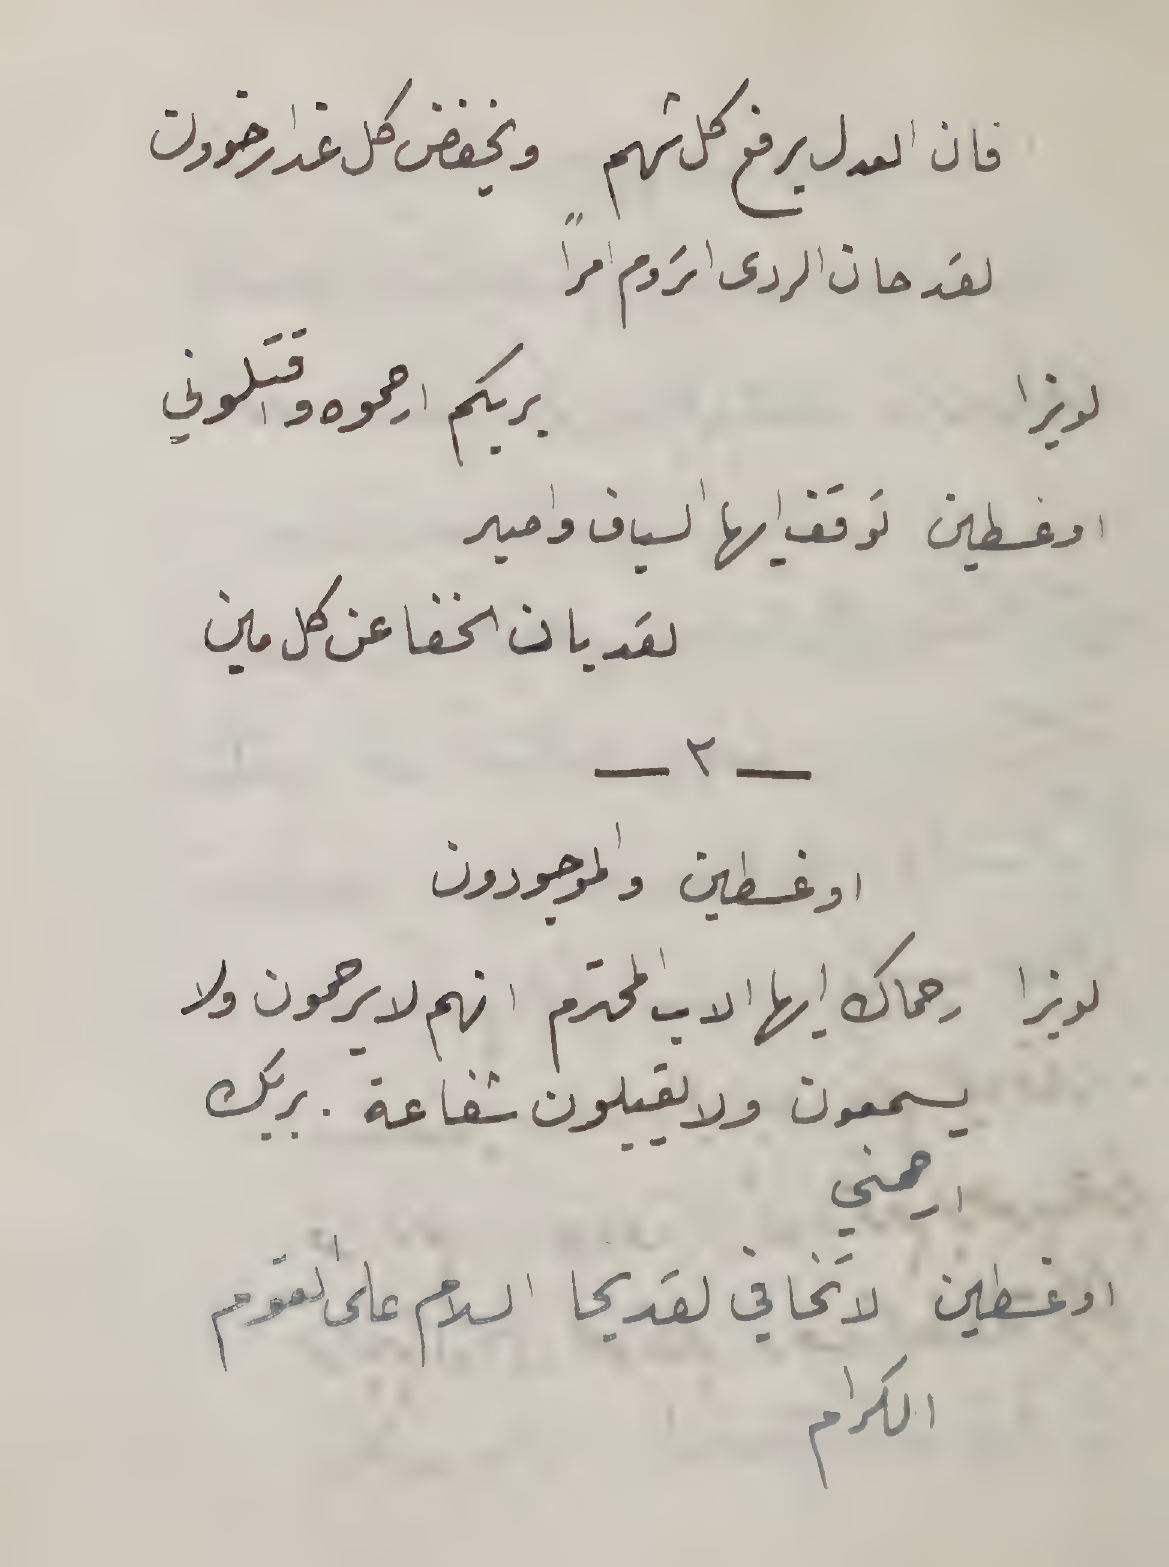 فان العدل يرفع كل شهم ويخفض كل غدار خوون
لقد حان الردى اتروم امراً
لويزا بربكم ارحموه واقتلوني
اوغسطين توقف ايها السياف واصبر
لقد بان الخفا عن كل مين
— ٣ —
اوغسطين والموجودون
لويزا رحماك ايها الاب المحترم انهم لا يرحمون ولا
يسمعون ولا يقبلون شفاعة . بربك
ارحمني
اوغسطين لا تخافي لقد نجا السلام على القوم
الكرام